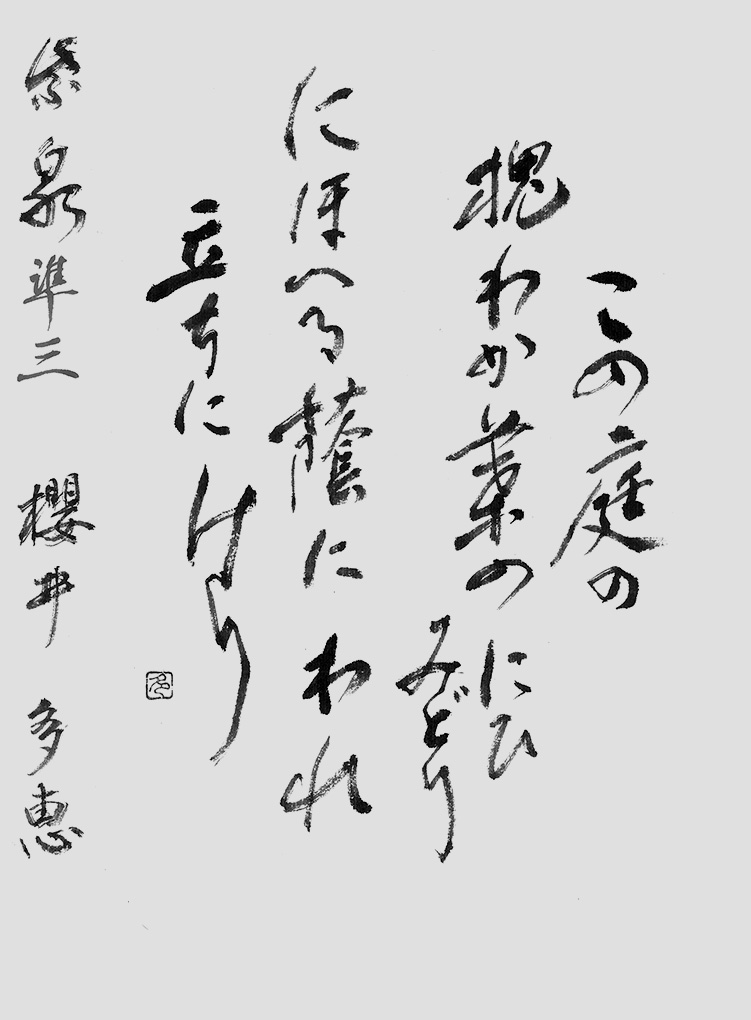 この庭の
槐わか葉のにひ
みどり
にほへる蔭にわれ
立ちにけり
紫泉準三 櫻井 多恵